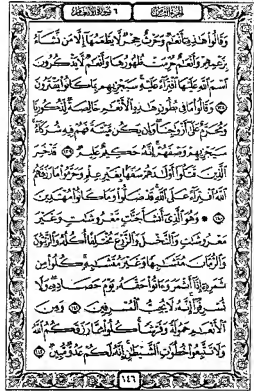 الجزء الثامن ٦ سورة الأنعام
وَقَالُوا۟ هَـٰذِهِۦٓ أَنْعَـٰمٌ وَحَرْثٌ حِجْرٌ لَّا يَطْعَمُهَآ إِلَّا مَن نَّشَآءُ
بِزَعْمِهِمْ وَأَنْعَـٰمٌ حُرِّمَتْ ظُهُورُهَا وَأَنْعَـٰمٌ لَّا يَذْكُرُونَ
ٱسْمَ ٱللَّهِ عَلَيْهَا ٱفْتِرَآءً عَلَيْهِ سَيَجْزِيهِم بِمَا كَانُوا۟ يَفْتَرُونَ
١٣٨ وَقَالُوا۟ مَا فِى بُطُونِ هَـٰذِهِ ٱلْأَنْعَـٰمِ خَالِصَةٌ لِّذُكُورِنَا
وَمُحَرَّمٌ عَلَىٰٓ أَزْوَٰجِنَا وَإِن يَكُن مَّيْتَةً فَهُمْ فِيهِ شُرَكَآءُ
سَيَجْزِيهِمْ وَصْفَهُمْ إِنَّهُۥ حَكِيمٌ عَلِيمٌ ١٣٩ قَدْ خَسِرَ
ٱلَّذِينَ قَتَلُوٓا۟ أَوْلَـٰدَهُمْ سَفَهًۢا بِغَيْرِ عِلْمٍ وَحَرَّمُوا۟ مَا رَزَقَهُمُ
ٱللَّهُ ٱفْتِرَآءً عَلَى ٱللَّهِ قَدْ ضَلُّوا۟ وَمَا كَانُوا۟ مُهْتَدِينَ
١٤٠ ۞ وَهُوَ ٱلَّذِىٓ أَنشَأَ جَنَّـٰتٍ مَّعْرُوشَـٰتٍ وَغَيْرَ
مَعْرُوشَـٰتٍ وَٱلنَّخْلَ وَٱلزَّرْعَ مُخْتَلِفًا أُكُلُهُۥ وَٱلزَّيْتُونَ
وَٱلرُّمَّانَ مُتَشَـٰبِهًا وَغَيْرَ مُتَشَـٰبِهٍ كُلُوا۟ مِن
ثَمَرِهِۦٓ إِذَآ أَثْمَرَ وَءَاتُوا۟ حَقَّهُۥ يَوْمَ حَصَادِهِۦ وَلَا
تُسْرِفُوٓا۟ إِنَّهُۥ لَا يُحِبُّ ٱلْمُسْرِفِينَ ١٤١ وَمِنَ
ٱلْأَنْعَـٰمِ حَمُولَةً وَفَرْشًا كُلُوا۟ مِمَّا رَزَقَكُمُ ٱللَّهُ
وَلَا تَتَّبِعُوا۟ خُطُوَٰتِ ٱلشَّيْطَـٰنِ إِنَّهُۥ لَكُمْ عَدُوٌّ مُّبِينٌ ١٤٢
١٤٦